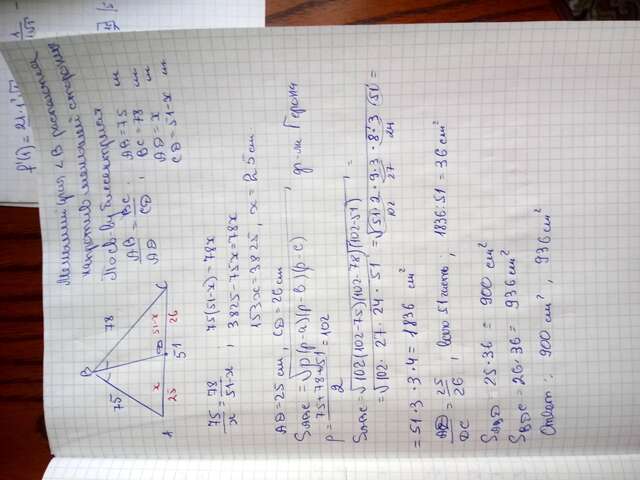 f'(1) = 21·1
Меньший угол ∠B расположен
напротив меньшей стороны
По св-ву биссектрисы
AB/AD = BC/CD ; AB = 75
BC = 78
AD = x
CD = 51-x
B
75
78
x
51-x
25
26
A
D
C
51
75/x = 78/51-x ; 75(51-x) = 78x
3825-75x=78x
153x=3825, x=25см
AD=25 см, CD=26 см
SABC = √p(p-a)(p-b)(p-c) , ф-ла Герона
p = 75+78+51/2 = 102
SABC = √102(102-75)(102-78)(102-51) =
= √102·27·24·51 = √51·2·9·3·8·3·51 =
102 27 24
= 51·3·3·4 = 1836 см²
AD/DC = 25/26 , всего 51 часть ; 1836:51 = 36 см²
SABD 25·36 = 900 см²
SBDC = 26·36 = 936 см²
Ответ: 900 см², 936 см²